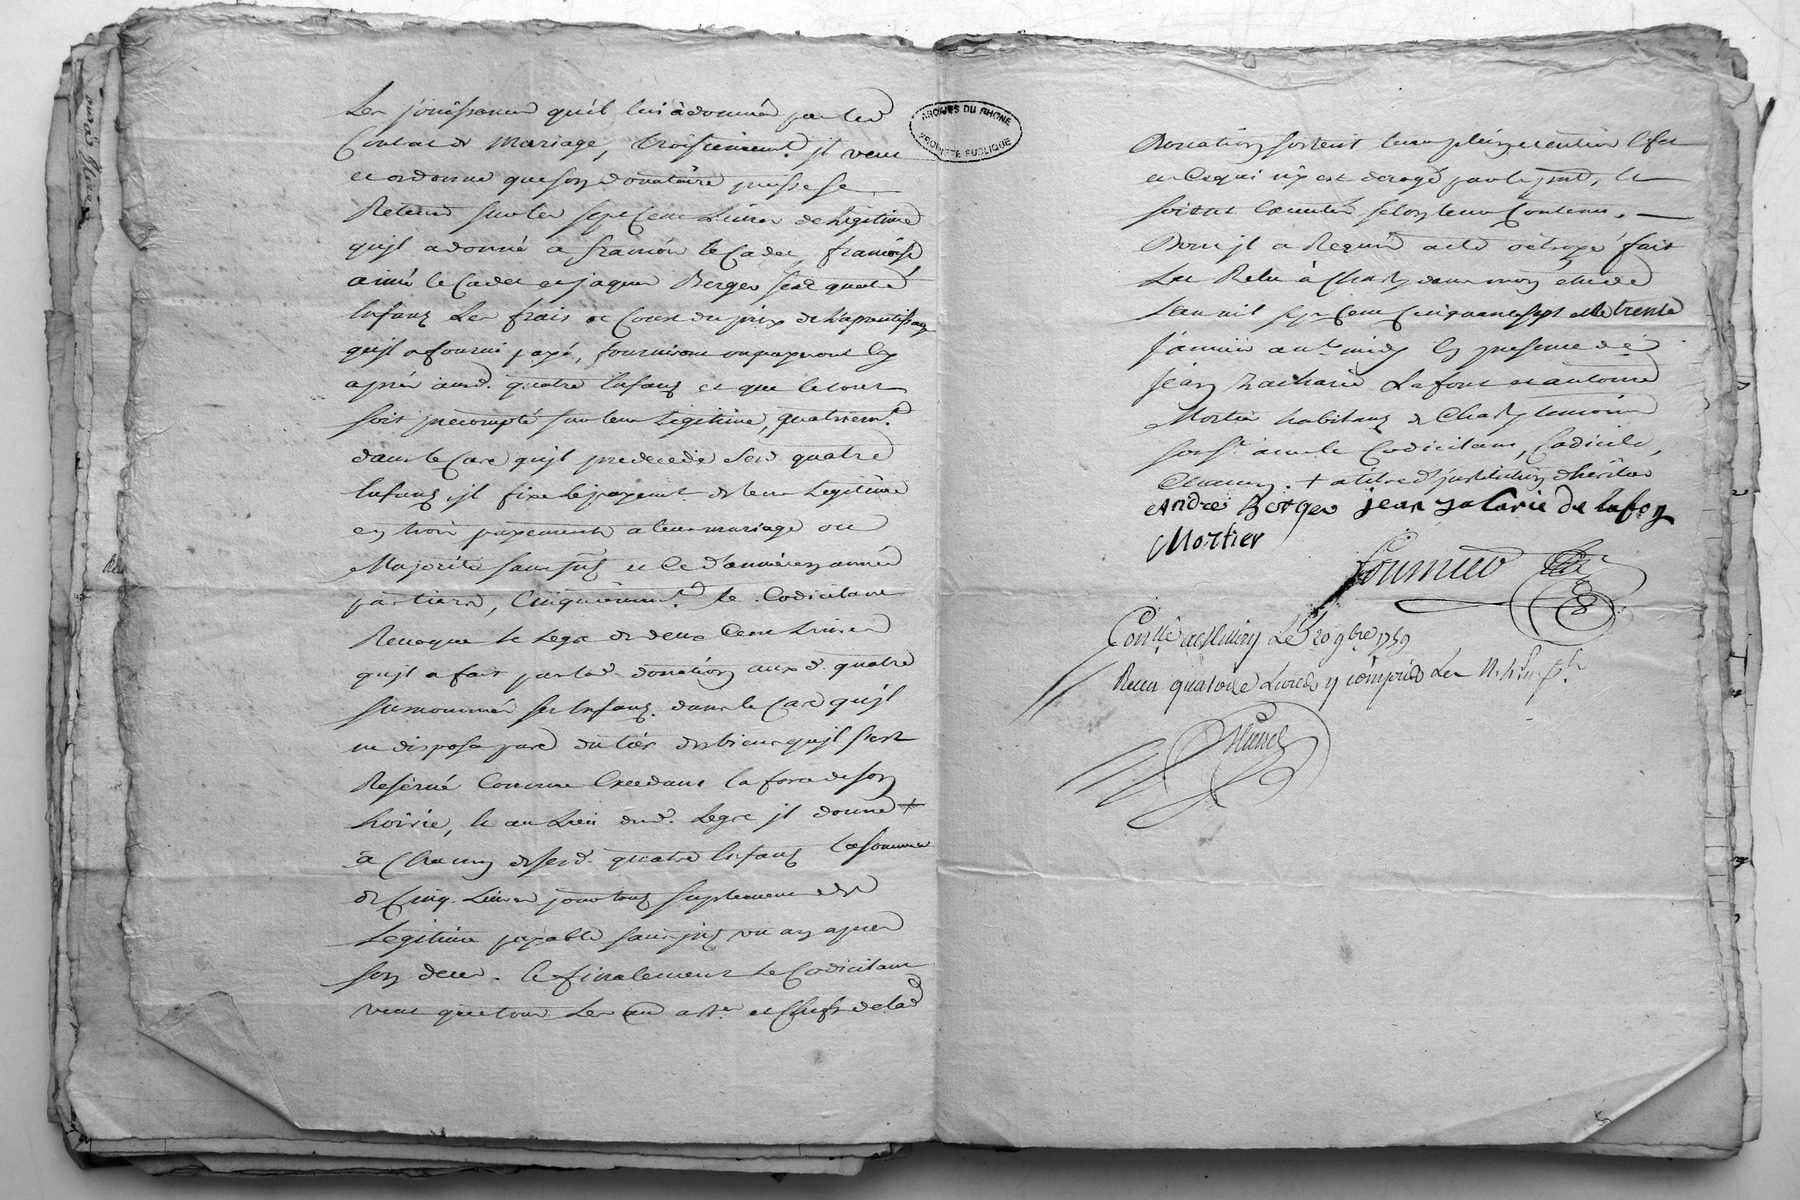 Les jouissances qu'il lui à donnée par led
Contrat de Mariage, troisiemem.t jl veut
et ordonne que son donataire puisse se
Retenir sur les sept cent Livres de Legitime
qu'jl a donné a francois le Cadet, francoise
aimé le Cadet et jaques Berger sesd quatre
Enfans Les frais et Cout du prix de L'aprentissage
qu'jl a fourni payé, fourniront ou payeront cy
apres ausd. quatre Enfans et que le tout
soit precompté sur leur Legitime, quatriem.t
dans le Cas qu'jl predecede sesd quatre
Enfans, jl fixe le payem.t de leur Legitime
en trois payements a leur mariage ou
Majorité sans jnt et ce d'année en année
partiers, Cinquiemem.t le Codicilant
Revoque le Legs de deux Cent Livres
qu'jl a fait par lad. donation aux d. quatre
surnommés ses Enfans. dans le Cas qu'jl
ne disposa pas du tiers des biens qu'jl s'est
Reservé Comme Excedant la force de son
hoirie, et au Lieu dud. Legs jl donne +
a Chacun de sesd. quatre Enfans la somme
de Cinq Livres pour tout suplement de
Legitime payable sans jnt un an apres
son deces. Et finalement le Codicilant
veut que tous Les au. et Chefs de lad
Donation sortent leur plein et entier Effet
en Ce qui n'y est derogé par le pnt, et
soient Executés selon leur Contenu.
Dont jl a Requis acte octroyé fait
Lu Relu à Charly dans mon etude
L'an mil sept cent Cinquante sept et le trente
janvier av.t midy En presence de
jean Zacharie Lafont et antoine
Mortier habitans de Charly temoins
sous.é avec le Codicilant, Codicile,
Chacun. + a titre d'jnstitution d'heritier
Andre Berger jean zacarie de lafon
Mortier
fournier
Con.llé a Millery Le 20 9bre 1757
Recu quatorze Livres y compris Les